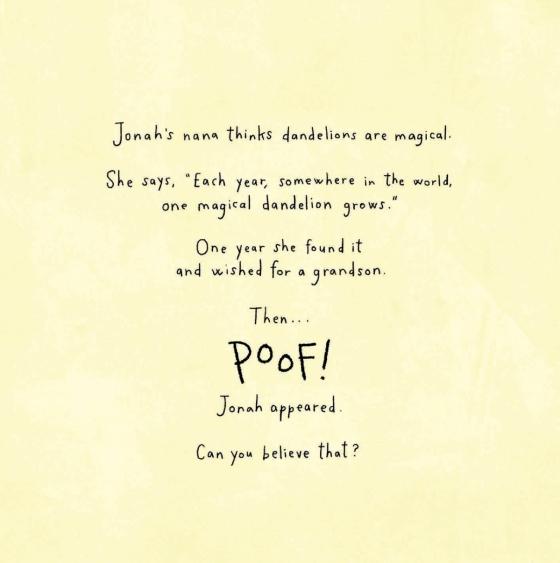 Jonah's nana thinks dandelions are magical.
She says, "Each year, somewhere in the world,
one magical dandelion grows."
One year she found it
and wished for a grandson.
Then...
POOF!
Jonah appeared.
Can you believe that?